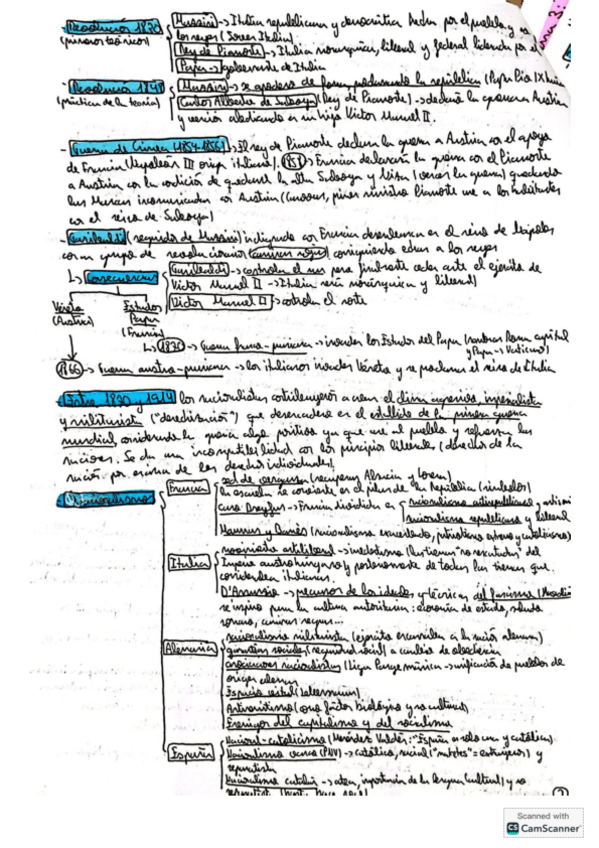 Revolución 1830
(primeros teóricos)
Mazzini -> Italia republicana y democrática hecha por el pueblo y no
los reyes (Joven Italia)
Rey de Piamonte -> Italia monárquica, liberal y federal liderada por el
Papa -> gobernante de Italia
Revolución 1848
(práctica de la teoría)
Mazzini -> se apodera de Roma, proclamando la república (Papa Pío IX
Carlos Alberto de Saboya (Rey de Piamonte) -> declara la guerra Austria
y abdicando en su hijo Víctor Manuel II.
- Guerra de Crimea (1854-1856) -> El rey de Piamonte declara la guerra a Austria con el apoyo
de Francia (Napoleón III origen italiano). 1859 -> Francia declarará la guerra con el Piamonte
a Austria con la condición de quedarse la alta Saboya y Niza (vencen la guerra) quedando
con Austria (Cavour, primer ministro Piamonte une a los
con el reino de Saboya)
- Garibaldi (seguidor de Mazzini) indignado con Francia desembarca en el reino de Nápoles
con un grupo de revolucionarios (camisas rojas) consiguiendo echar a los reyes
L> Consecuencias
Garibaldi -> controla el sur pero finalmente cede ante el ejército de
Víctor Manuel II -> Italia será monárquica y liberal
Víctor Manuel II -> controla el norte
Véneto
(Austria)
Estados
Papa
(Francia)
L> 1870 -> Guerra franco-prusiana -> invaden los Estados del Papa (nombran Roma capital
y Papa -> Vaticano)
1866 -> Guerra austro-prusiana -> los italianos invaden Véneto y se proclama el reino de Italia
- Entre 1870 y 1914 los nacionalistas contribuyeron a crear el clima agresivo, imperialista
y militarista ("derechización") que desencadena en el estallido de la primera guerra
mundial, considerando la guerra algo positivo ya que une al pueblo y refuerza las
naciones. Se da una incompatibilidad con los principios liberales (derechos de la
nación por encima de los derechos individuales)
Nacionalismo
Francia
sed de venganza (recuperar Alsacia y Lorena)
la escuela se convierte en el pilar de la República (símbolos)
Caso Dreyfus -> Francia dividida en
nacionalismo antirrepublicano y
nacionalismo republicano y liberal
Maurras y Barrès (nacionalismo exacerbado, y catolicismo)
Italia
antiliberal -> irredentismo (las tierras "no rescatadas" del
Imperio austrohúngaro y posteriormente de todas las tierras que
consideraban italianas.
D'Annunzio -> precursor de los ideales y técnicas del fascismo (Mussolini
se inspiró para la cultura autoritaria: economía de estado, saludo
romano, camisas negras...
Alemania
nacionalismo militarista (ejército a la nación alemana)
garantías sociales (seguridad social) a cambio de obediencia
asociaciones nacionalistas (Liga Pangermánica -> unificación de pueblos de
origen alemán
Espacio vital (Lebensraum)
Antisemitismo (como factor biológico y no cultural)
Enemigos del capitalismo y del socialismo
España
Nacional-catolicismo (Menéndez Valdés: "España es solo una y católica)
Nacionalismo vasco (PNV) -> católico, racial ("maketos" = extranjeros) y
separatista
Nacionalismo catalán -> , importancia de la lengua (cultural) y no
separatista
Scanned with
CS CamScanner